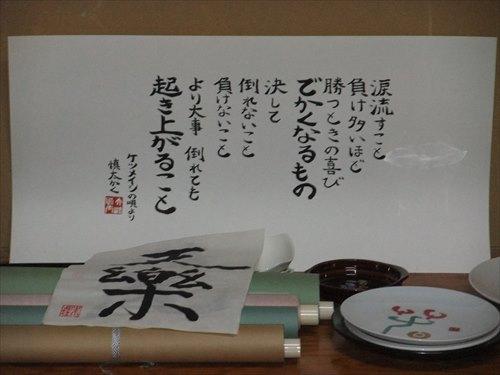 涙流すこと
負け多いほど
勝つときの喜び
でかくなるもの
決して
倒れないこと
負けないこと
より大事 倒れても
起き上がること
ケツメイシの唄より
慎太かく